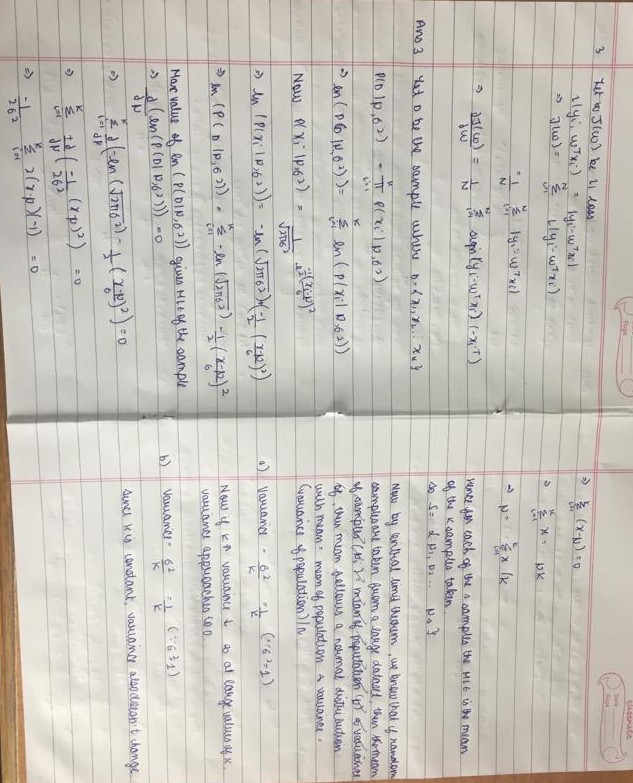 Page
3 Let J(w) be L1 loss
L(yi, wTxi) = |yi - wTxi|
⇒ J(w) = N Σ i=1 L(yi - wTxi)
= 1/N N Σ i=1 |yi - wTxi|
⇒ ∂J(w)/∂w = 1/N N Σ i=1 sign(yi - wTxi) (-xiT)
Ans 3 Let D be the sample where D = {x1, x2 .. xk}
P(D|μ,σ2) = k π i=1 P(xi|μ,σ2)
⇒ ln(P(D|μ,σ2)) = k Σ i=1 ln(P(xi|μ,σ2))
Now P(xi|μ,σ2) = 1/√2πσ2 e^-1/2(xi-μ/σ)^2
⇒ ln(P(xi|μ,σ2)) = -ln(√2πσ2) + (-1/2 (x-μ/σ)^2)
⇒ ln(P(D|μ,σ2)) = k Σ i=1 -ln(√2πσ2) - 1/2 (x-μ/σ)^2
Max value of ln(P(D|μ,σ2)) gives MLE of the sample
⇒ ∂/∂μ (ln(P(D|μ,σ2))) = 0
⇒ k Σ i=1 ∂/∂μ (-ln(√2πσ2) - 1/2 (x-μ/σ)^2) = 0
⇒ k Σ i=1 +∂/∂μ (-1/2σ2 (x-μ)^2) = 0
⇒ -1/2σ2 k Σ i=1 2(x-μ)(-1) = 0
classmate
Date
Page
⇒ k Σ i=1 (x-μ) = 0
⇒ k Σ i=1 x = μk
⇒ μ = k Σ i=1 x /k
Hence for each of the s samples the MLE is the mean
of the k samples taken.
so S = {μ1, μ2 .. μs}
Now by central limit theorem, we know that if random
samples are taken from a large dataset, then the mean
of samples (μi) = mean of population (μ) & variance
of, then mean follows a normal distribution
with mean = mean of population & variance =
(variance of population)/n
a) Variance = σ2/k = 1/k (∵σ2=1)
Now if k↑ variance ↓ so at large values of k,
variance approaches to 0.
b) Variance = σ2/k = 1/k (∵σ2=1)
Since k is constant, variance also doesn't change.